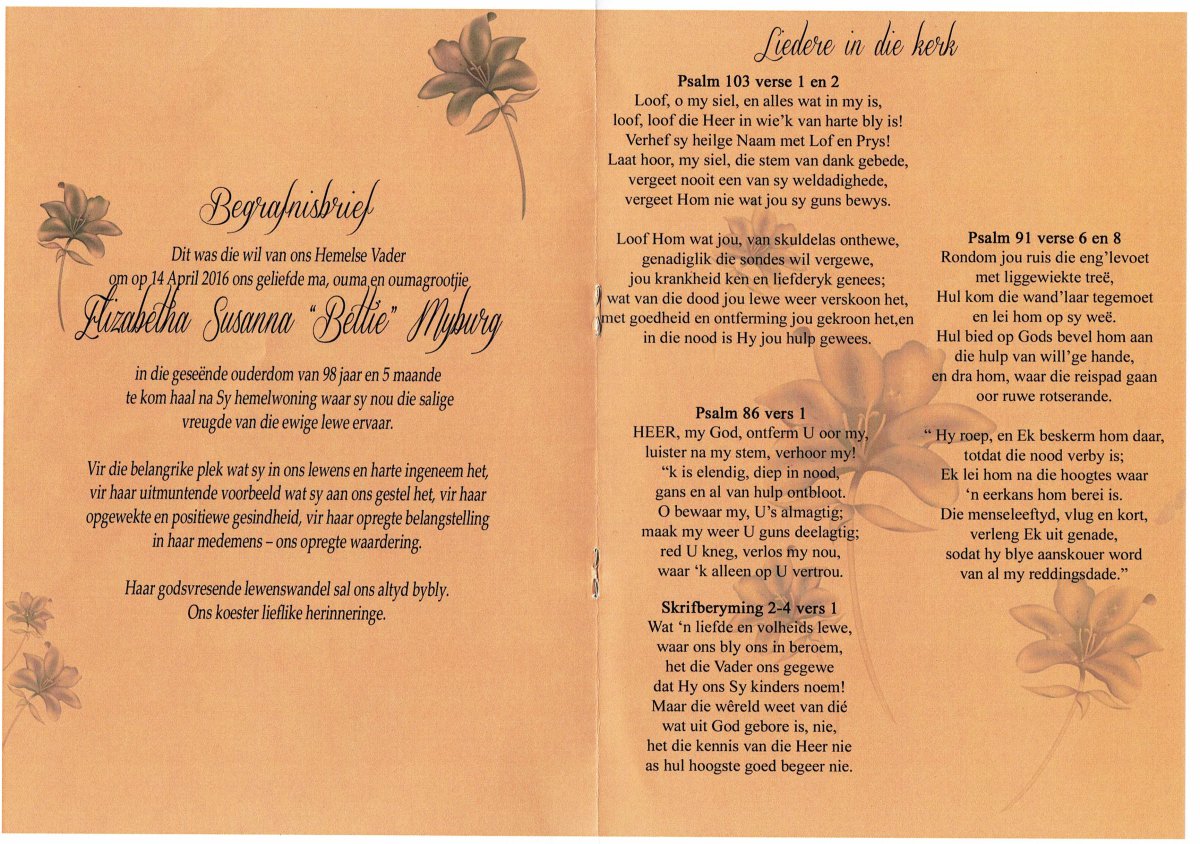 Begrafnisbrief
Dit was die wil van ons Hemelse Vader
om op 14 April 2016 ons geliefde ma, ouma en oumagrootjie
Elizabetha Susanna “Bettie” Myburg
in die geseënde ouderdom van 98 jaar en 5 maande
te kom haal na Sy hemelwoning waar sy nou die salige
vreugde van die ewige lewe ervaar.
Vir die belangrike plek wat sy in ons lewens en harte ingeneem het,
vir haar uitmuntende voorbeeld wat sy aan ons gestel het, vir haar
opgewekte en positiewe gesindheid, vir haar opregte belangstelling
in haar medemens – ons opregte waardering.
Haar godsvresende lewenswandel sal ons altyd bybly.
Ons koester lieflike herinneringe.
Liedere in die kerk
Psalm 103 verse 1 en 2
Loof, o my siel, en alles wat in my is,
loof, loof die Heer in wie’k van harte bly is!
Verhef sy heilge Naam met Lof en Prys!
Laat hoor, my siel, die stem van dank gebede,
vergeet nooit een van sy weldadighede,
vergeet Hom nie wat jou sy guns bewys.
Loof Hom wat jou, van skuldelas onthewe,
genadiglik die sondes wil vergewe,
jou krankheid ken en liefderyk genees;
wat van die dood jou lewe weer verskoon het,
met goedheid en ontferming jou gekroon het,en
in die nood is Hy jou hulp gewees.
Psalm 86 vers 1
HEER, my God, ontferm U oor my,
luister na my stem, verhoor my!
“k is elendig, diep in nood,
gans en al van hulp ontbloot.
O bewaar my, U’s almagtig;
maak my weer U guns deelagtig;
red U kneg, verlos my nou,
waar ‘k alleen op U vertrou.
Skrifberyming 2-4 vers 1
Wat ‘n liefde en volheids lewe,
waar ons bly ons in beroem,
het die Vader ons gegewe
dat Hy ons Sy kinders noem!
Maar die wêreld weet van dié
wat uit God gebore is, nie,
het die kennis van die Heer nie
as hul hoogste goed begeer nie.
Psalm 91 verse 6 en 8
Rondom jou ruis die eng’levoet
met liggewiekte treë,
Hul kom die wand’laar tegemoet
en lei hom op sy weë.
Hul bied op Gods bevel hom aan
die hulp van will’ge hande,
en dra hom, waar die reispad gaan
oor ruwe rotserande.
“ Hy roep, en Ek beskerm hom daar,
totdat die nood verby is;
Ek lei hom na die hoogtes waar
‘n eerkans hom berei is.
Die menseleeftyd, vlug en kort,
verleng Ek uit genade,
sodat hy blye aanskouer word
van al my reddingsdade.”